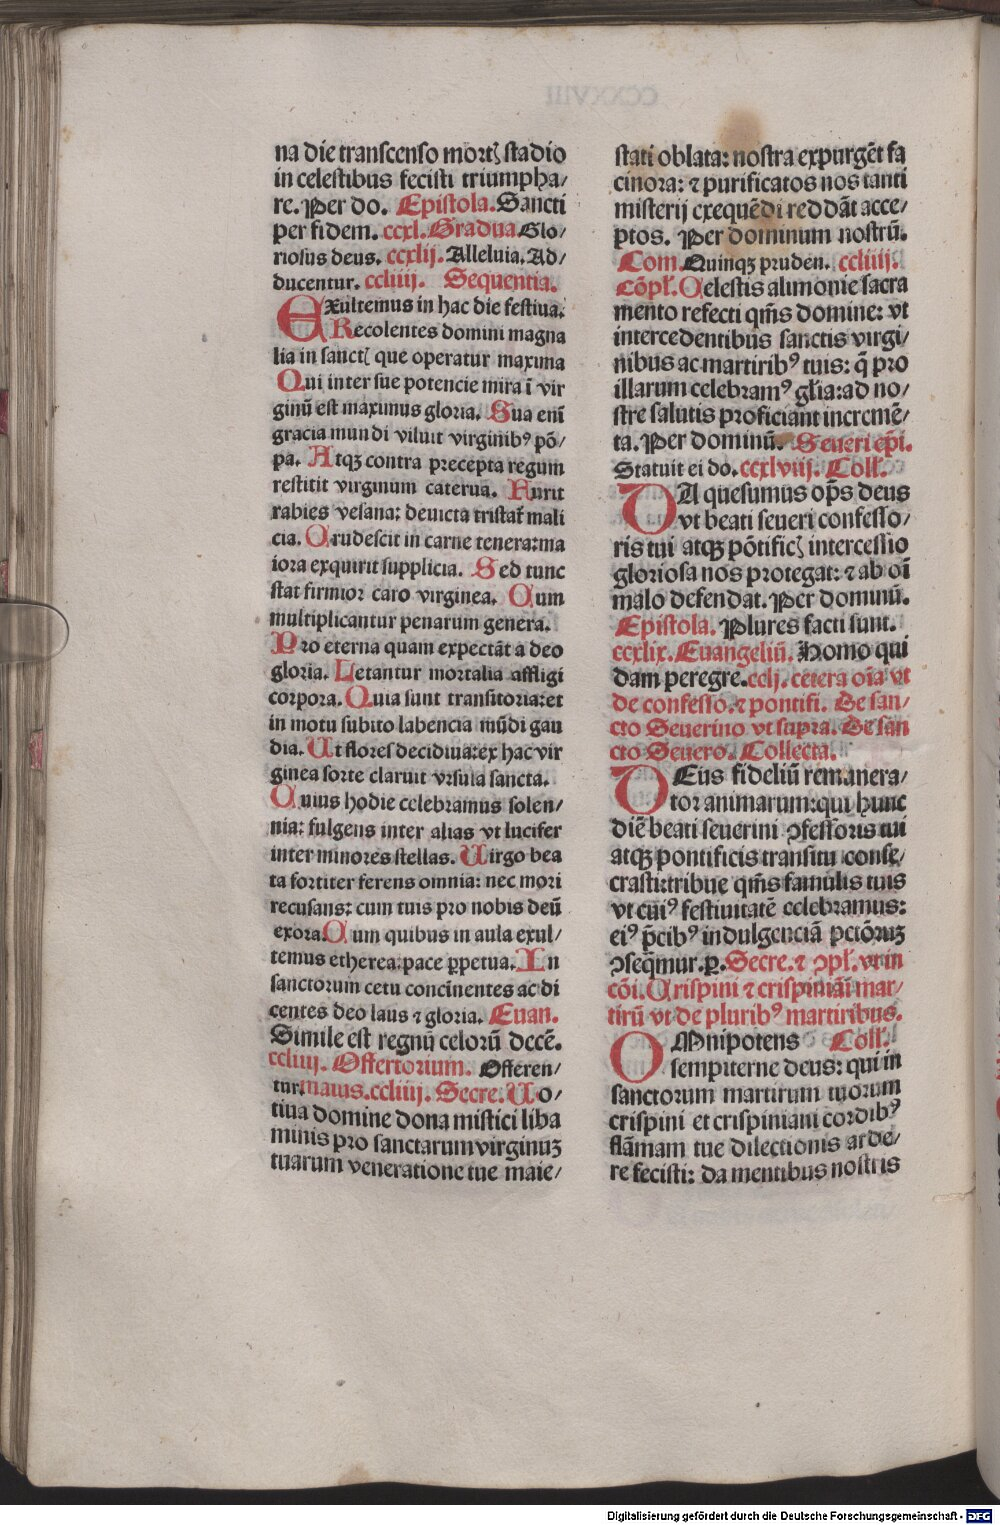 na die transcenso mortꝭ stadio
in celestibus fecisti triumpha/
re. Per do. Epistola. Sancti
per fidem. ccxl. Gradua. Glo/
riosus deus. ccxlij. Alleluia. Ad/
ducentur. ccliiij. Sequentia.
Exultemus in hac die festiua.
Recolentes domini magna
lia in sanctꝭ que operatur maxima
Qui inter sue potencie mira ī vir
ginū est maximus gloria. Sua enī
gracia mundi viluit virginibꝰ pō/
pa. Atqꝫ contra precepta regum
restitit virginum caterua. Furit
rabies vesana: deuicta tristat᷑ mali
cia. Crudescit in carne tenera: ma
iora exquirit supplicia. Sed tunc
stat firmior caro virginea. Cum
multiplicantur penarum genera.
Pro eterna quam expectāt a deo
gloria. Letantur mortalia affligi
corpora. Quia sunt transitoria: et
in motu subito labencia mūdi gau
dia. Ut flores decidiua: ex hac vir
ginea sorte claruit vrsula sancta.
Cuius hodie celebramus solen/
nia: fulgens inter alias vt lucifer
inter minores stellas. Uirgo bea
ta fortiter ferens omnia: nec mori
recusans: cum tuis pro nobis deū
exora. Cum quibus in aula exul/
temus etherea: pace ꝑpetua. In
sanctorum cetu concinentes ac di
centes deo laus ⁊ gloria. Euan.
Simile est regnū celorū decē.
ccliiij. Offertorium. Offeren/
tur maius. ccliiij. Secre. Uo/
tiua domine dona mistici liba
minis pro sanctarum virginuꝫ
tuarum veneratione tue maie/
stati oblata: nostra expurgēt fa
cinora: ⁊ purificatos nos tanti
misterij exequēdi reddāt acce/
ptos. Per dominum nostrū.
Com. Quinqꝫ pruden. ccliiij.
Cōpl̄. Celestis alimonie sacra
mento refecti qm̄s domine: vt
intercedentibus sanctis virgi/
nibus ac martiribꝰ tuis: q̄ pro
illarum celebramꝰ gl̄ia: ad no/
stre salutis proficiant incremē/
ta. Per dominū. Seueri ep̄i.
Statuit ei do. ccxlviij. Coll̄.
DA quesumus op̄s deus
vt beati seueri confesso/
ris tui atqꝫ pōtificꝭ intercessio
gloriosa nos protegat: ⁊ ab oī
malo defendat. Per dominū.
Epistola. Plures facti sunt.
ccxlix. Euangeliū. Homo qui
dam peregre. cclj. cetera oīa vt
de confesso. ⁊ pontifi. De san/
cto Seuerino vt supra. De san
cto Seuero. Collecta.
DEus fideliū remunera/
tor animarum: qui hunc
diē beati seuerini ꝯfessoris tui
atqꝫ pontificis transitu conse/
crasti: tribue qm̄s famulis tuis
vt cuiꝰ festiuitatē celebramus:
eiꝰ p̄cibꝰ indulgenciā pctōruꝫ
ꝯseq̄mur. ꝑ. Secre. ⁊ ꝯpl̄. vt in
cōi. Crispini ⁊ crispiniāi mar/
tirū vt de pluribꝰ martiribus.
OMnipotens Coll̄.
sempiterne deus: qui in
sanctorum martirum tuorum
crispini et crispiniani cordibꝰ
flāmam tue dilectionis arde/
re fecisti: da mentibus nostris
Digitalisierung gefördert durch die Deutsche Forschungsgemeinschaft - DFG